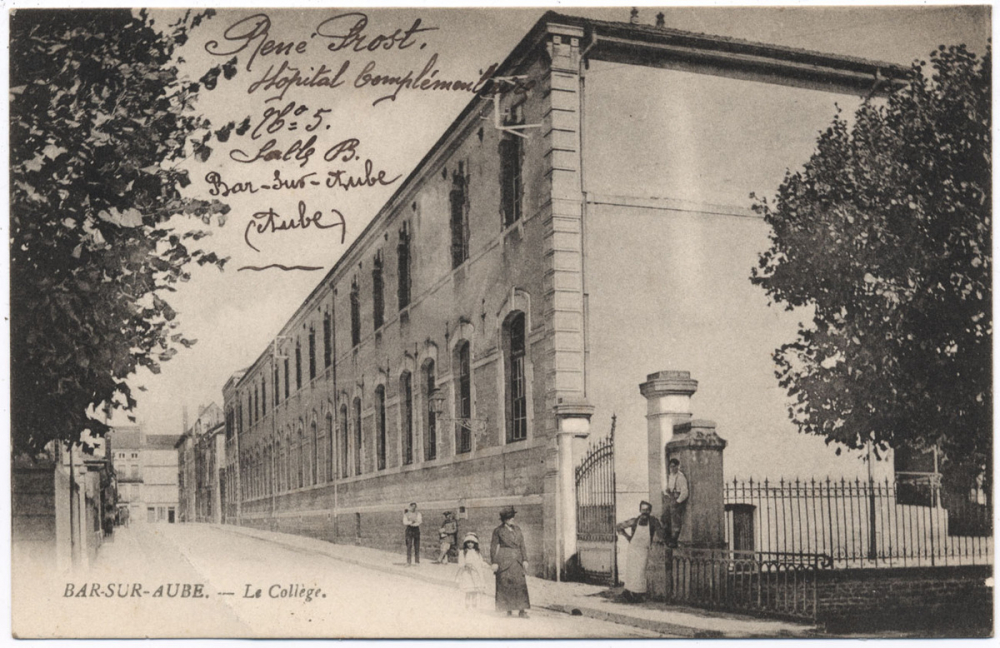 René Prost.
Hôpital Complémentaire
No 5.
Salle B.
Bar-Sur-Aube
(Aube)
BAR-SUR-AUBE. — Le Collège.